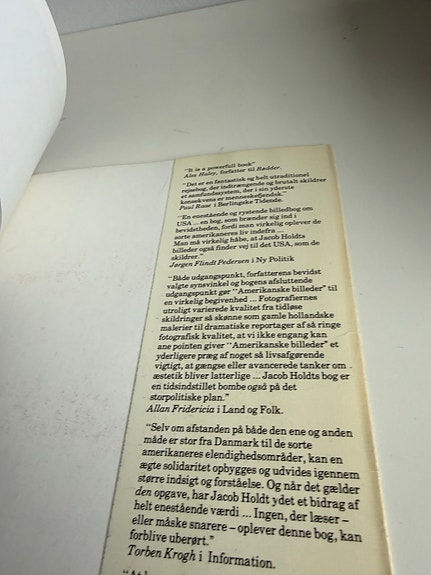 "It is a powerfull book"
Alex Haley, forfatter til Rødder.
"Det er en fantastisk og helt utraditionel
rejsebog, der indtrængende og brutalt skildrer
et samfundssystem, der i sin yderste
konsekvens er menneskefjendsk."
Paul Raae i Berlingske Tidende.
"En enestående og rystende billedbog om
USA ... en bog, som brænder sig ind i
bevidstheden, fordi man virkelig oplever de
sorte amerikaneres liv indefra ...
Man må virkelig håbe, at Jacob Holdts
billeder også finder vej til det USA, som de
skildrer."
Jørgen Flindt Pedersen i Ny Politik
"Både udgangspunkt, forfatterens bevidst
valgte synsvinkel og bogens afsluttende
udgangspunkt gør "Amerikanske billeder" til
en virkelig begivenhed ... Fotografiernes
utroligt varierede kvalitet fra tidløse
skildringer så skønne som gamle hollandske
malerier til dramatiske reportager af så ringe
fotografisk kvalitet, at vi ikke engang kan
ane pointen giver "Amerikanske billeder" et
yderligere præg af noget så livsafgørende
vigtigt, at gængse eller avancerede tanker om
æstetik bliver latterlige ... Jacob Holdts bog er
en tidsindstillet bombe også på det
storpolitiske plan."
Allan Fridericia i Land og Folk.
"Selv om afstanden på både den ene og anden
måde er stor fra Danmark til de sorte
amerikaneres elendighedsområder, kan en
ægte solidaritet opbygges og udvides igennem
større indsigt og forståelse. Og når det gælder
den opgave, har Jacob Holdt ydet et bidrag af
helt enestående værdi ... Ingen, der læser –
eller måske snarere – oplever denne bog, kan
forblive uberørt."
Torben Krogh i Information.